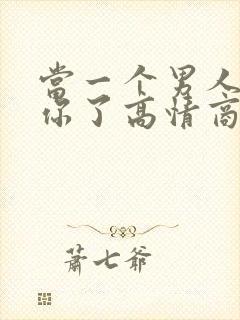 當一个男人
你了高情商
蕭七爺